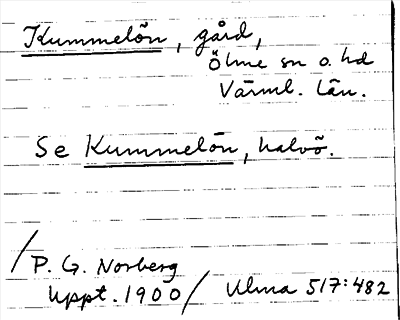 Kummelön, gård,
Ölme sn o. hd
Värml. län.
Se Kummelön, halvö.
/P. G. Norberg
Uppt. 1900/ Ulma 517:482